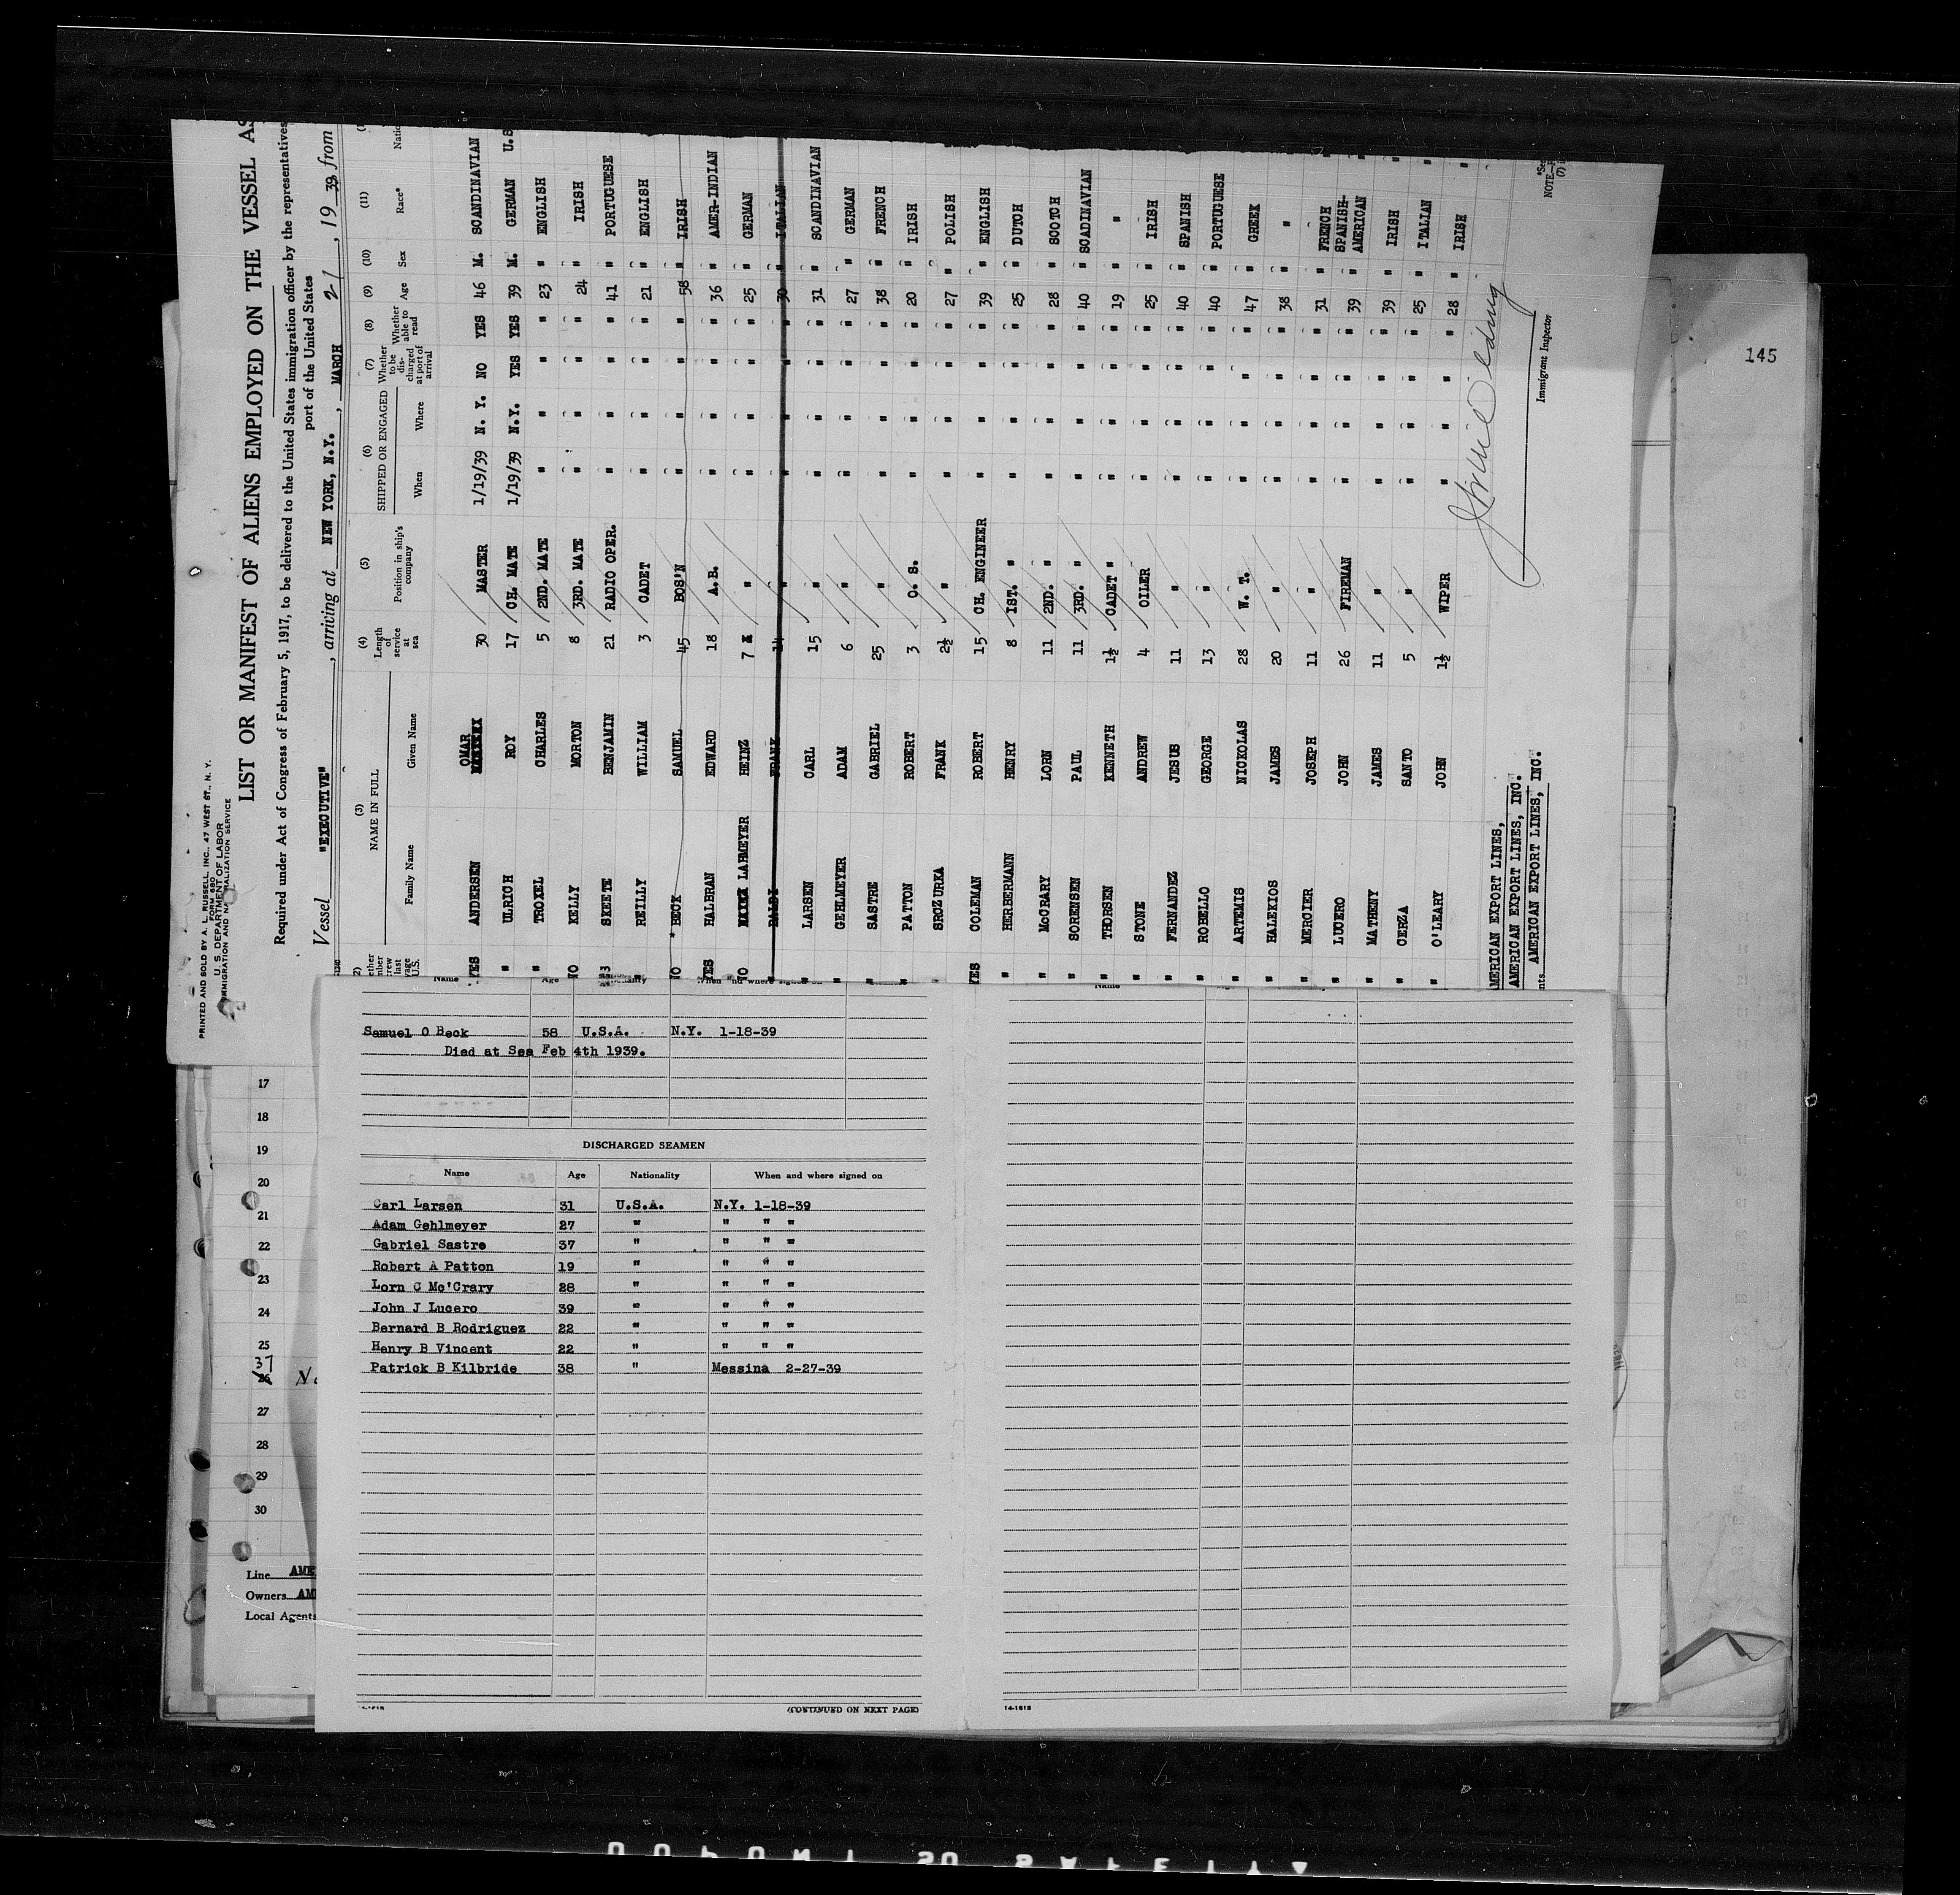 PRINTED AND SOLD BY A. L. RUSSELL, INC., 47 WEST ST., N. Y.
FORM 680
U. S. DEPARTMENT OF LABOR
IMMIGRATION AND NATURALIZATION SERVICE
LIST OR MANIFEST OF ALIENS EMPLOYED ON THE VESSEL AS
Required under Act of Congress of February 5, 1917, to be delivered to the United States immigration officer by the representatives
port of the United States
Vessel "EXECUTIVE", arriving at NEW YORK, N.Y., MARCH 21, 19 39 from
(3) NAME IN FULL (4) (5) (6) SHIPPED OR ENGAGED (7) (8) (9) (10) (11)
Family Name Given Name Length of service at sea Position in ship's company When Where Whether to be discharged at port of arrival Whether able to read Age Sex Race*
YES ANDERSEN OMAR 30 MASTER 1/19/39 N. Y. NO YES 46 M. SCANDINAVIAN
" ULRICH ROY 17 CH. MATE 1/19/39 N.Y. YES YES 39 M. GERMAN U.S
" TROXEL CHARLES 5 2ND. MATE " " " " 23 " ENGLISH
NO KELLY MORTON 8 3RD. MATE " " " " 24 " IRISH
SKEETE BENJAMIN 21 RADIO OPER. " " " " 41 " PORTUGUESE
" REILLY WILLIAM 3 CADET " " " " 21 " ENGLISH
NO * BECK SAMUEL 45 BOS'N " " " " 58 " IRISH
YES HALBRAN EDWARD 18 A.B. " " " " 36 " AMER-INDIAN
NO LAHMEYER HEINZ 7 " " " " " 25 " GERMAN
" BALDI FRANK 14 " " " " " 30 " ITALIAN
" LARSEN CARL 15 " " " " " 31 " SCANDINAVIAN
" GEHLMEYER ADAM 6 " " " " " 27 " GERMAN
" SASTRE GABRIEL 25 " " " " " 38 " FRENCH
" PATTON ROBERT 3 O. S. " " " " 20 " IRISH
SROZURKA FRANK 2½ " " " " " 27 " POLISH
YES COLEMAN ROBERT 15 CH. ENGINEER " " " " 39 " ENGLISH
" HERBERMANN HENRY 8 1ST. " " " " " 25 " DUTCH
" McCRARY LORN 11 2ND. " " " " " 28 " SCOTCH
" SORENSEN PAUL 11 3RD. " " " " " 40 " SCADINAVIAN
" THORSEN KENNETH 1½ CADET " " " " " 19 " "
" STONE ANDREW 4 OILER " " " " 25 " IRISH
" FERNANDEZ JESUS 11 " " " " " 40 " SPANISH
" ROBELLO GEORGE 13 " " " " " 40 " PORTUGUESE
" ARTEMIS NICKOLAS 28 W. T. " " " " 47 " GREEK
" HALEKIOS JAMES 20 " " " " " 38 " "
" MERCIER JOSEPH 11 " " " " " 31 " FRENCH "
" LUCERO JOHN 26 FIREMAN " " " " 39 " SPANISH-AMERICAN "
" MATHENY JAMES 11 " " " " " 39 " IRISH "
" CERZA SANTO 5 " " " " " 25 " ITALIAN "
" O'LEARY JOHN 1½ WIPER " " " " 28 " IRISH "
AMERICAN EXPORT LINES,
AMERICAN EXPORT LINES, INC.
AMERICAN EXPORT LINES, INC.
Immigrant Inspector
NOTE
145
Name Age Nationality When and where signed on
Samuel O Beck 58 U.S.A. N.Y. 1-18-39
Died at Sea Feb 4th 1939.
DISCHARGED SEAMEN
Name Age Nationality When and where signed on
Carl Larsen 31 U.S.A. N.Y. 1-18-39
Adam Gehlmeyer 27 " " " "
Gabriel Sastre 37 " " " "
Robert A Patton 19 " " " "
Lorn C Mc'Crary 28 " " " "
John J Lucero 39 " " " "
Bernard B Rodriguez 22 " " " "
Henry B Vincent 22 " " " "
Patrick B Kilbride 38 " Messina 2-27-39
(CONTINUED ON NEXT PAGE)
Name
14-1618
17
18
19
20
21
22
23
24
25
37
26
27
28
29
30
Line AME
Owners AM
Local Agents